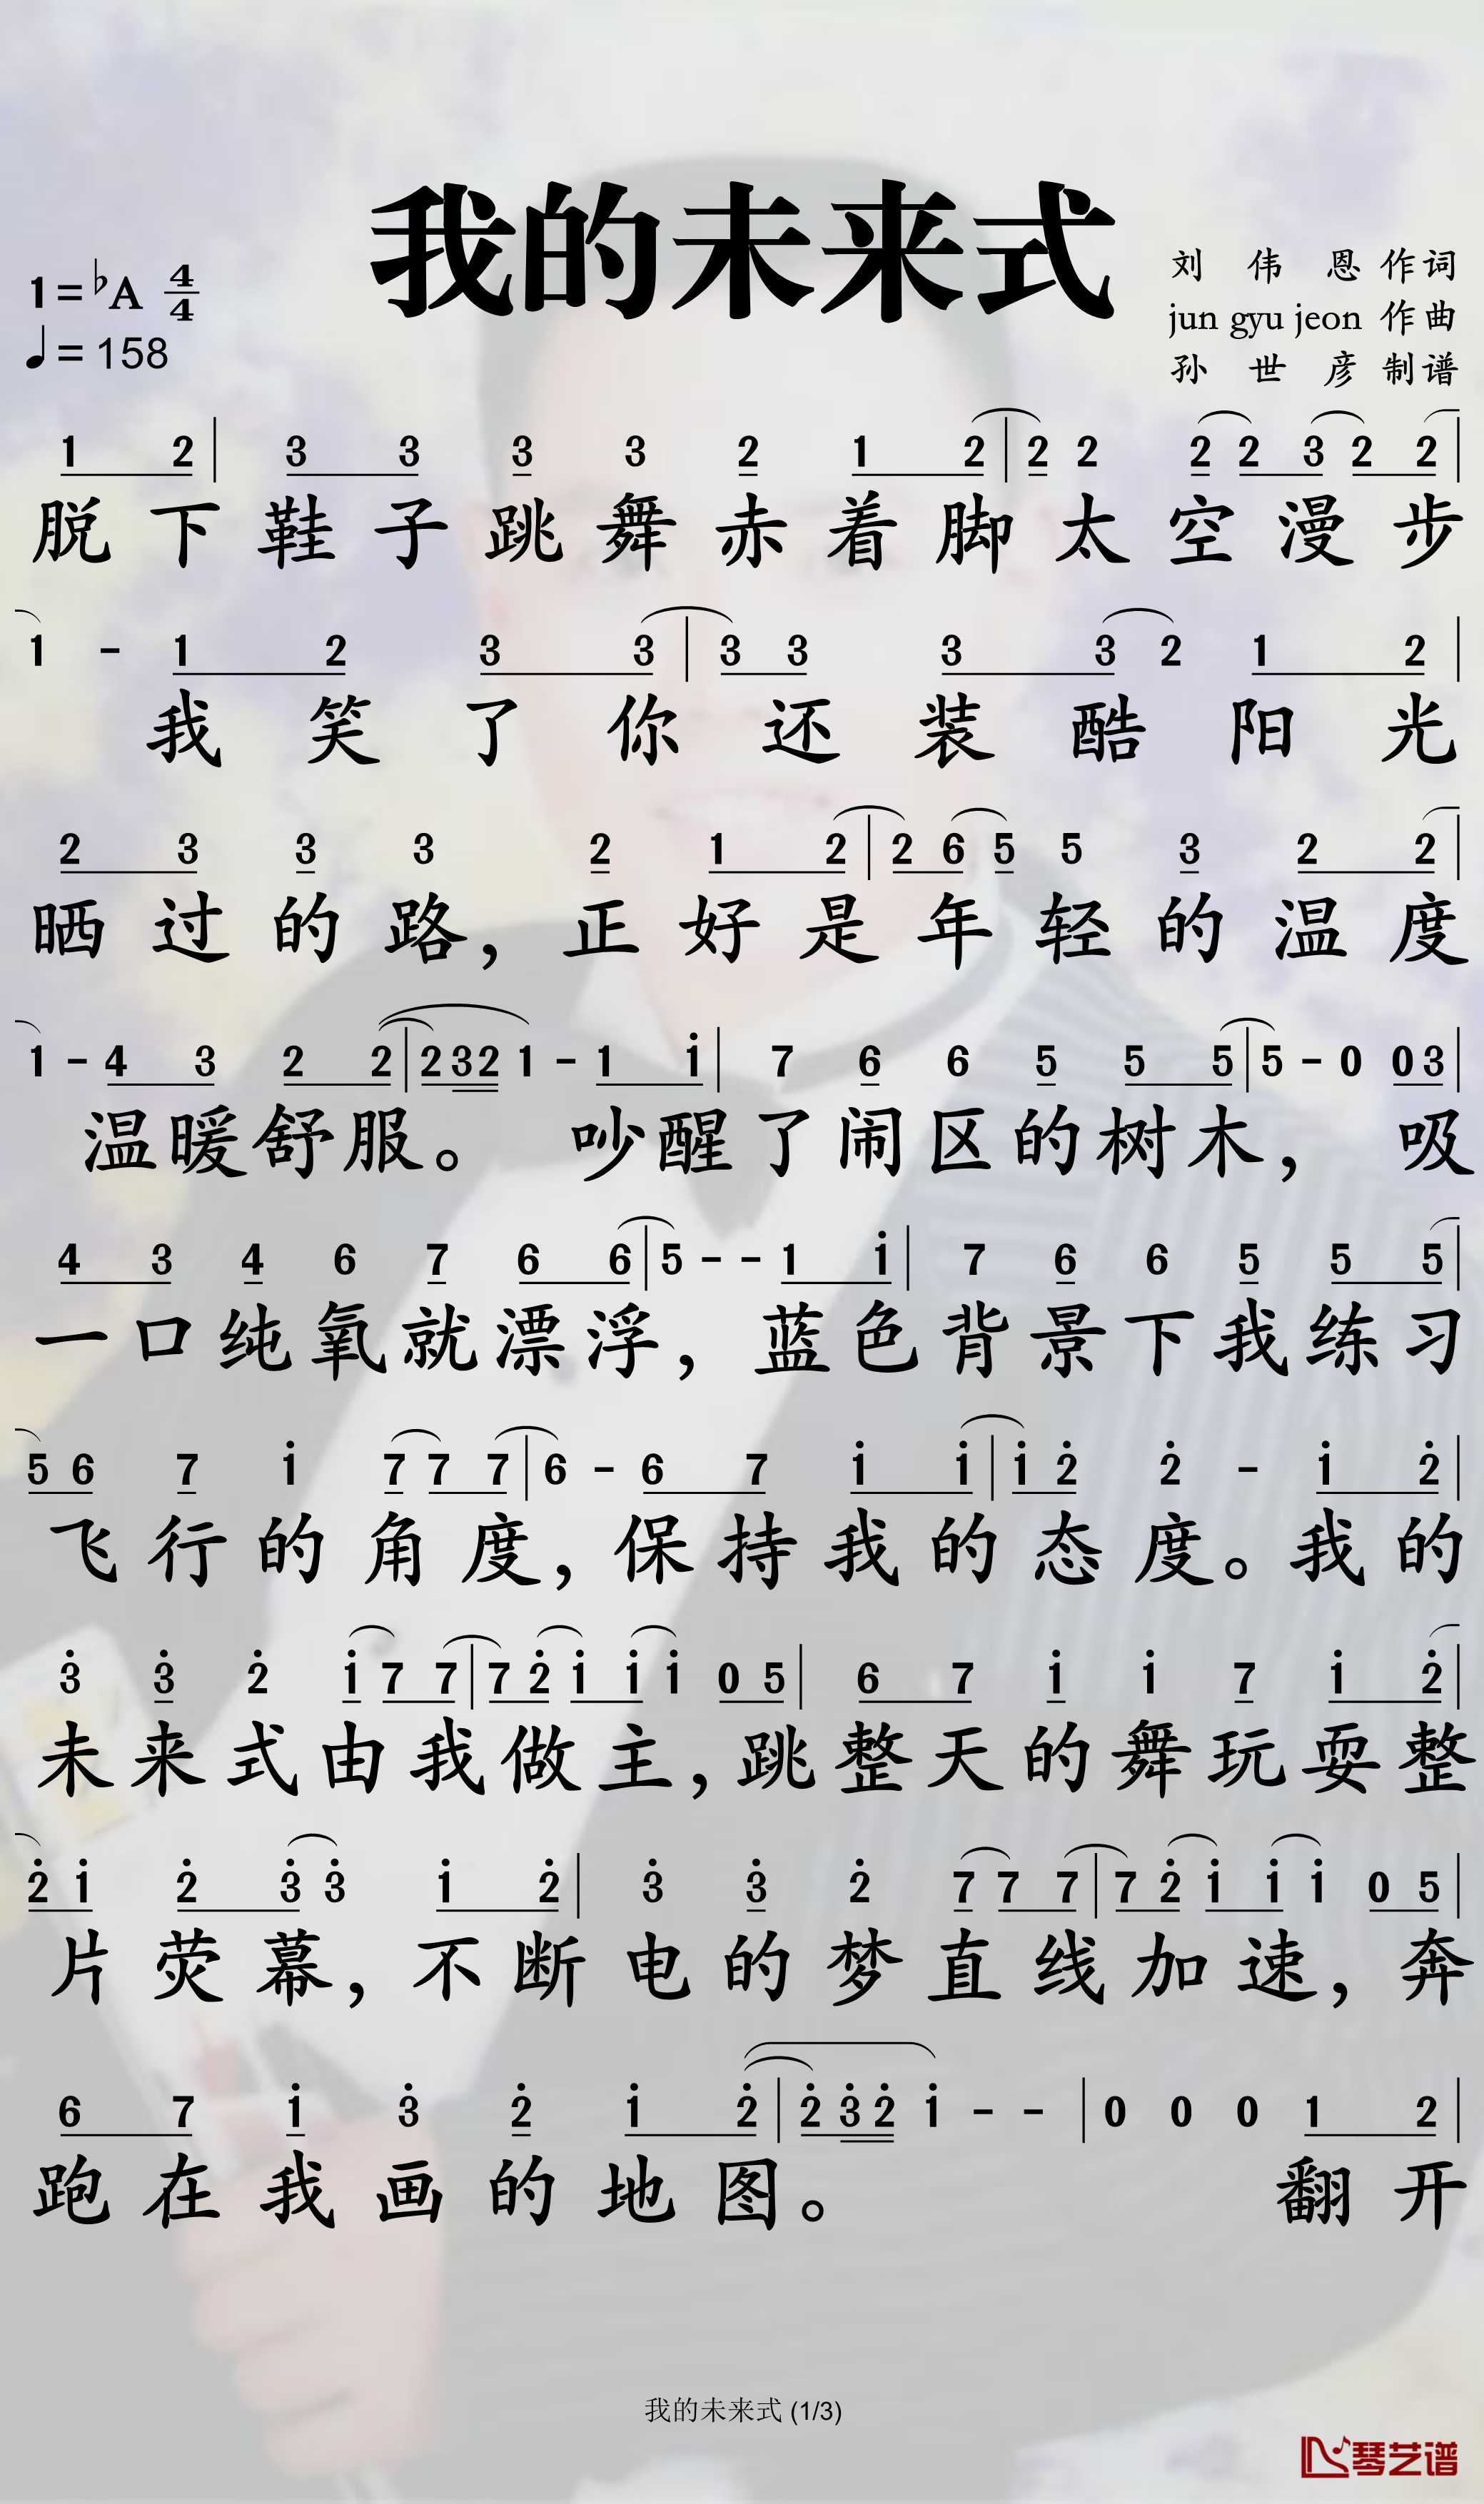 我的未来式
1=♭A 4/4
♩=158
刘 伟 恩 作词
jun gyu jeon 作曲
孙 世 彦 制谱
1 2 | 3 3 3 3 2 1 2 | 2 2 2 2 3 2 2 |
脱下鞋子跳舞赤着脚太空漫步
1 - 1 2 3 3 | 3 3 3 3 2 1 2 |
我笑了你还装酷阳光
2 3 3 3 2 1 2 | 2 6 5 5 3 2 2 |
晒过的路，正好是年轻的温度
1 - 4 3 2 2 | 2 3 2 1 - 1 i | 7 6 6 5 5 5 | 5 - 0 0 3 |
温暖舒服。 吵醒了闹区的树木， 吸
4 3 4 6 7 6 6 | 5 - - 1 i | 7 6 6 5 5 5 |
一口纯氧就漂浮，蓝色背景下我练习
5 6 7 i 7 7 7 | 6 - 6 7 i i | i 2̇ 2̇ - i 2̇ |
飞行的角度，保持我的态度。我的
3̇ 3̇ 2̇ i 7 7 | 7 2̇ i i i 0 5 | 6 7 i i 7 i 2̇ |
未来式由我做主，跳整天的舞玩耍整
2̇ i 2̇ 3̇ 3̇ i 2̇ | 3̇ 3̇ 2̇ 7 7 7 | 7 2̇ i i i 0 5 |
片荧幕，不断电的梦直线加速，奔
6 7 i 3̇ 2̇ i 2̇ | 2̇ 3̇ 2̇ i - - | 0 0 0 1 2 |
跑在我画的地图。 翻开
我的未来式 (1/3)
琴艺谱